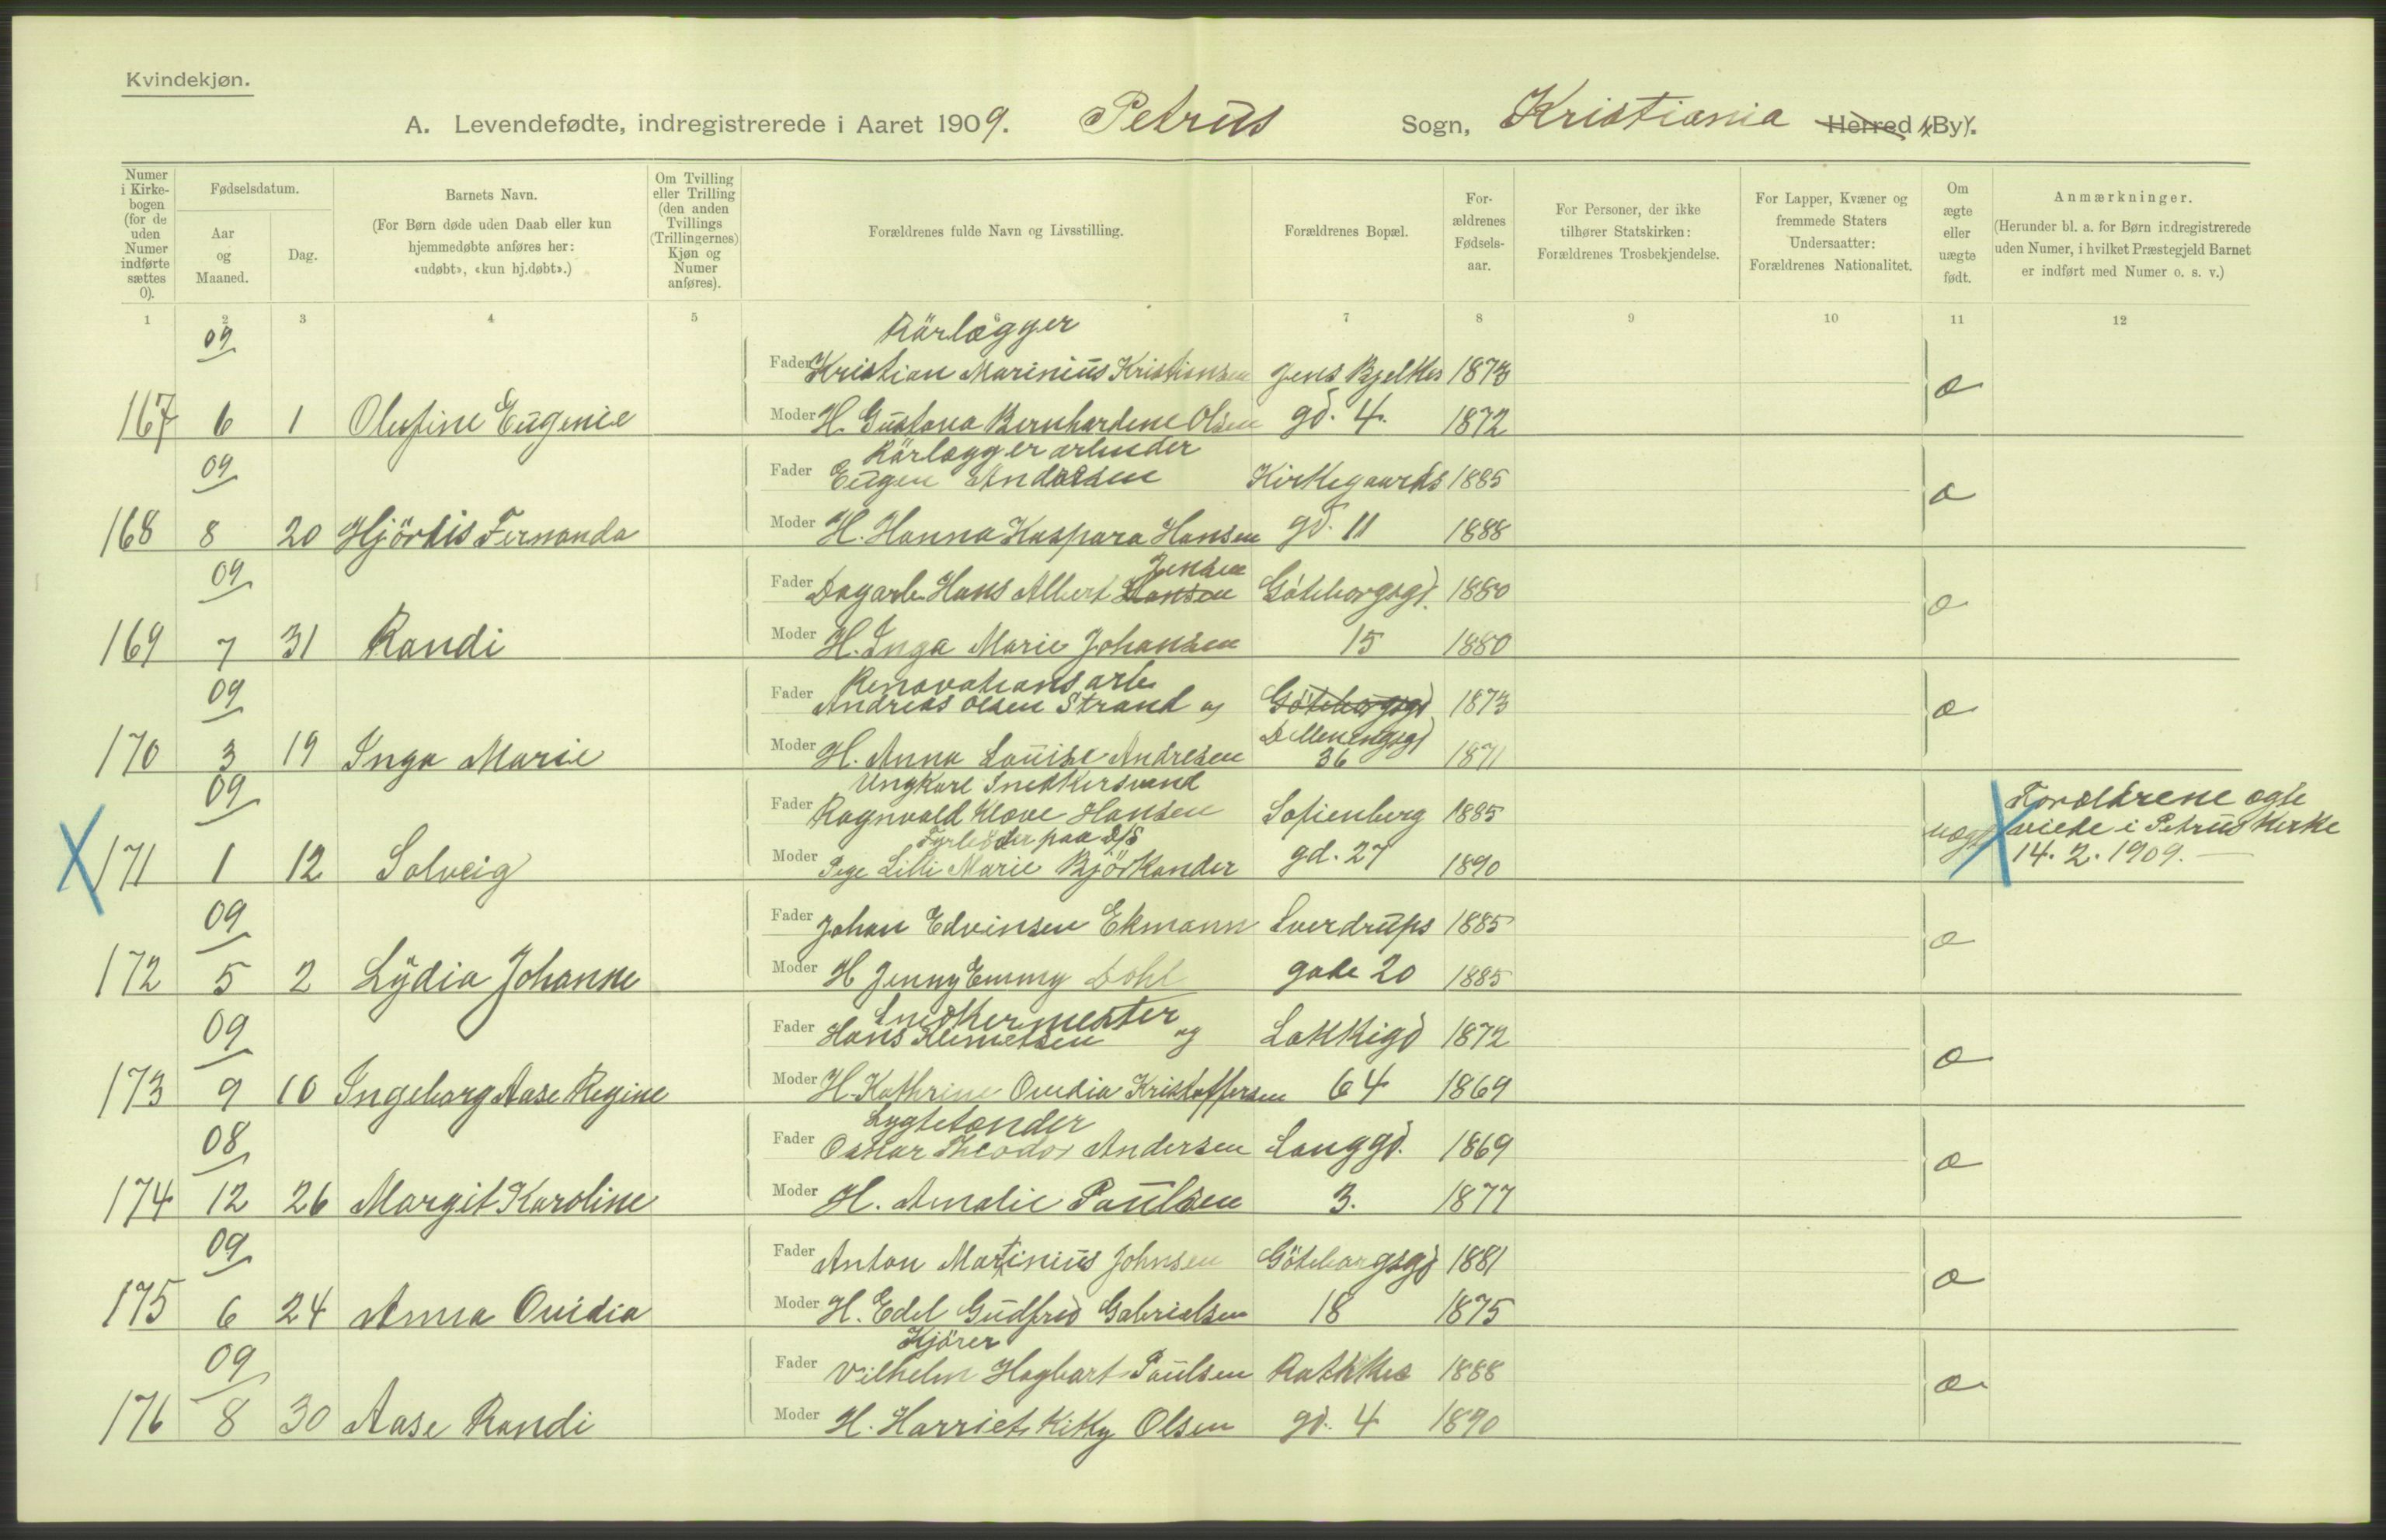 Kvindekjøn.
A. Levendefødte, indregistrerede i Aaret 1909. Petrus Sogn, Kristiania Herred (By).
Numer i Kirkebogen (for de uden Numer indførte sættes 0).
Fødselsdatum.
Aar og Maaned.
Dag.
Barnets Navn.
(For Børn døde uden Daab eller kun hjemmedøbte anføres her: «udøbt», «kun hj.døbt».)
Om Tvilling eller Trilling (den anden Tvillings (Trillingernes) Kjøn og Numer anføres).
Forældrenes fulde Navn og Livsstilling.
Forældrenes Bopæl.
For-ældrenes Fødsels-aar.
For Personer, der ikke tilhører Statskirken: Forældrenes Trosbekjendelse.
For Lapper, Kvæner og fremmede Staters Undersaatter: Forældrenes Nationalitet.
Om ægte eller uægte født.
Anmærkninger.
(Herunder bl. a. for Børn indregistrerede uden Numer, i hvilket Præstegjeld Barnet er indført med Numer o. s. v.)
1 2 3 4 5 6 7 8 9 10 11 12
09 Rörlægger
Fader Kristian Marinius Kristiansen Jens Bjelkes 1873 æ
167 6 1 Olufine Eugenie Moder H. Gustava Bernhardene Olsen gd. 4. 1872
09 Rörlæggerarbeider
Fader Eugen Andersen Kirkegaards 1885 æ
168 8 20 Hjördis Fernanda Moder H. Hanna Kaspara Hansen gd. 11 1888
Jensen
09 Fader Dagarb. Hans Albert Hansen Göteborgsgd. 1880 æ
169 7 31 Randi Moder H. Inga Marie Johansen 15 1880
09 Renovationsarb
Fader Andreas Olsen Strand og Göteborgsgd 1873 æ
170 3 19 Inga Marie Moder H. Anna Louise Andresen Dælenenggd 36 1871
09 Ungkarl Snedkersvend
Fader Ragnvald Klove Hansen Sofienberg 1885
Fyrböder paa D/S
171 1 12 Solveig Moder Pige Lilli Marie Björkander gd. 27 1890 uægt
Forældrene ægte
viede i Petrus Kirke
14. 2. 1909.
09 Fader Johan Edvinsen Ekmann Sverdrups 1885 æ
172 5 2 Lydia Johanne Moder H Jenny Emmy Dohl gade 20 1885
09 Snedkermester
Fader Hans Klemetsen og Lakkigd 1872 æ
173 9 10 Ingeborg Aase Regine Moder H. Kathrine Ovidia Kristoffersen 64 1869
08 Lygtetænder
Fader Oskar Theodor Andersen Langgd. 1869 æ
174 12 26 Margit Karoline Moder H. Amalie Paulsen 3. 1877
09 Fader Anton Martinius Johnsen Göteborgsgd 1881 æ
175 6 24 Anna Ovidia Moder H. Edel Gudfred Gabrielsen 18 1875
09 Kjörer
Fader Vilhelm Hagbart Paulsen Rathkes 1888 æ
176 8 30 Aase Randi Moder H. Harriet Kitty Olsen gd. 4 1890